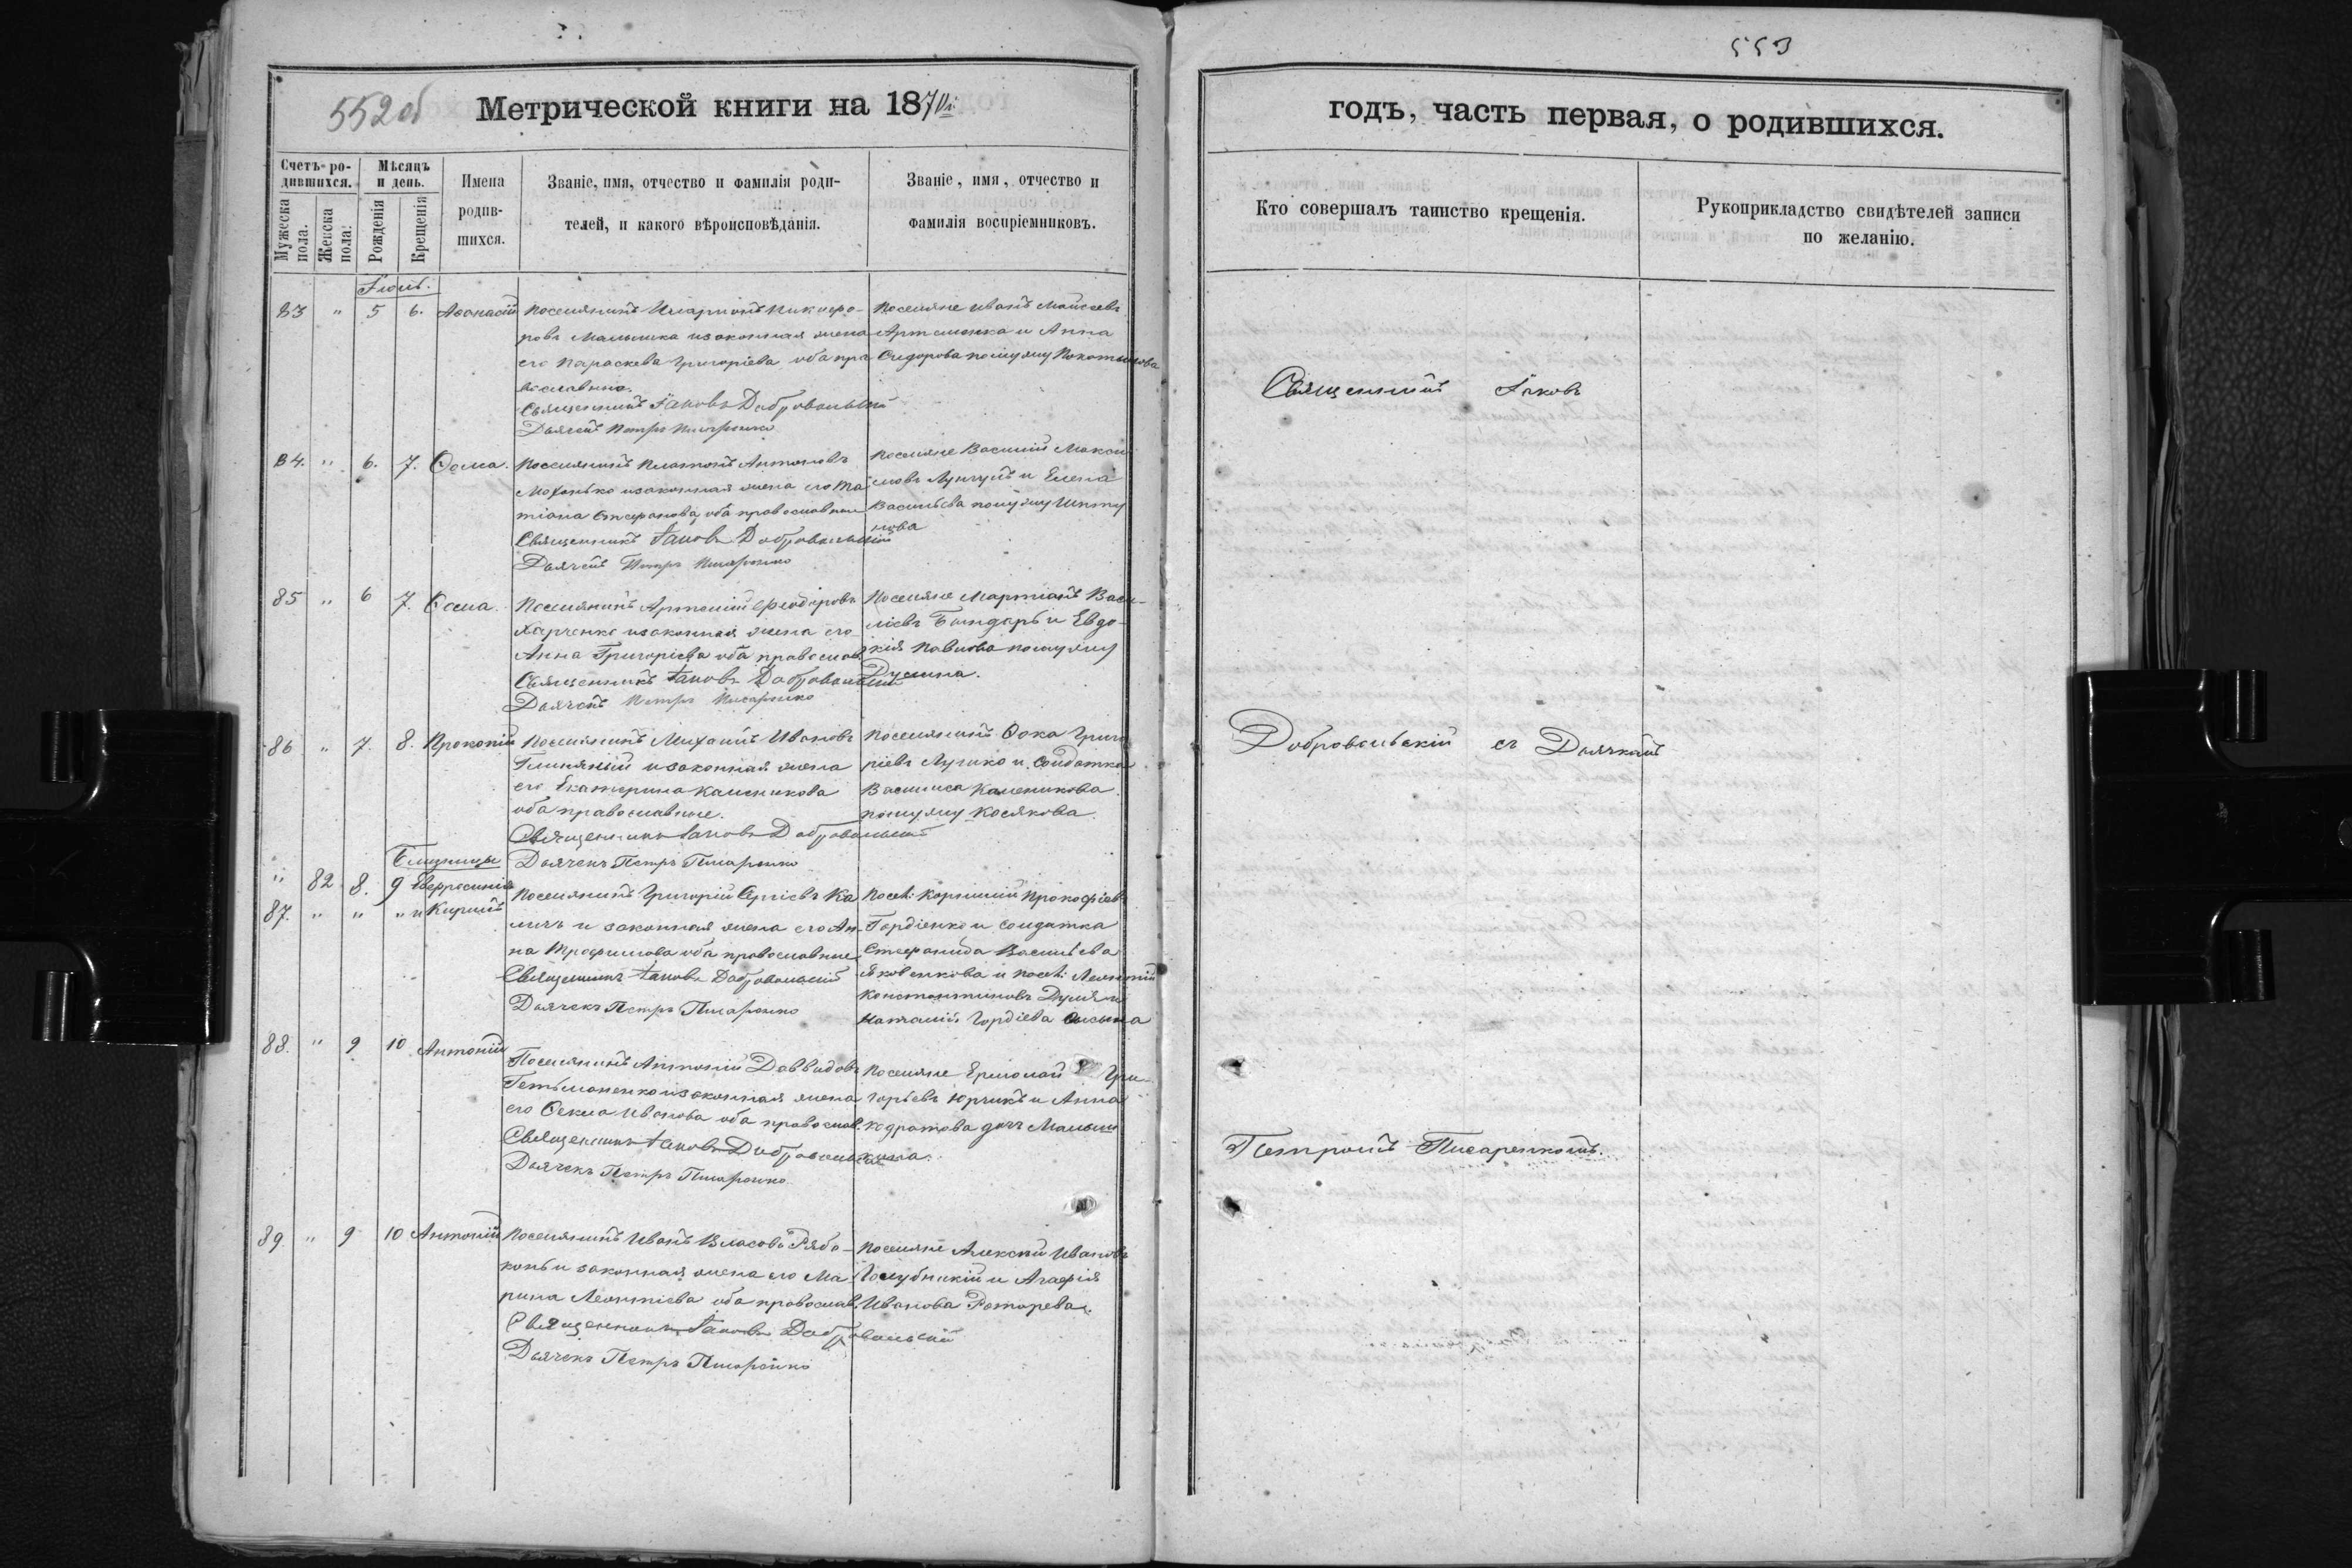 552об
Метрической книги на 1870й
Счетъ ро-
дившихся.
Мѣсяцъ
и день.
Мужеска
пола.
Женска
пола.
Рожденія
Крещенія
Имена
родив-
шихся.
Званіе, имя, отчество и фамилія роди-
телей, и какого вѣроисповѣданія.
Званіе, имя, отчество и
фамилія воспріемниковъ.
83 " 5 6. Аѳанасій
Поселянинъ Иларіонъ Никифо-
ровъ и законная жена
его Параскева Григоріева оба пра
вославные.
Священникъ Іаковъ Добровольскій
Дьячекъ Петръ Писаренко
Поселяне Иванъ Моисеевъ
и Анна
Сидорова по мужу
84. " 6. 7. Ѳома.
Поселянинъ Платонъ Антоновъ
и законная жена его Та
тіана Стефанова оба православные
Священникъ Іаковъ Добровольскій
Дьячекъ Петръ Писаренко
Поселяне Василій Макси
мовъ и Елена
Васильева по мужу
85 " 6 7. Ѳома.
Поселянинъ Артемій Феодоровъ
Харченко и законная жена его
Анна Григоріева оба православ
Священникъ Іаковъ Добровольскій
Дьячекъ Петръ Писаренко
Поселяне Мартіанъ Васи-
ліевъ Бондарь и Евдо-
кія Павлова по мужу
86 " 7. 8. Прокопій
Поселянинъ Михаилъ Ивановъ
Глиняный и законная жена
его Екатерина Каленикова
оба православные.
Священникъ Іаковъ Добровольскій
Дьячекъ Петръ Писаренко
Поселянинъ Ѳока Григо
ріевъ и солдатка
Василиса Каленикова
по мужу Косякова.
Близнецы
" 82 8. 9 Евфросинія
87. " " " и Кирилъ
Поселянинъ Григорій Сергіевъ Ка
личъ и законная жена его Ан-
на Трофимова оба православные
Священникъ Іаковъ Добровольскій
Дьячекъ Петръ Писаренко
Посел: Корнилій Прокофіевъ
Гордіенко и солдатка
Стефанида Васильева
Яковенкова и посел: Леонтій
Константиновъ
Наталія Гордіева
88. " 9 10 Антоній
Поселянинъ Антоній Даввидовъ
Гетьманенко и законная жена
его Ѳекла Иванова оба православ.
Священникъ Іаковъ Добровольскій
Дьячекъ Петръ Писаренко
Поселяне Ермолай Гри-
горьевъ Юрчикъ и Анна
Кодратова дочь
89. " 9 10 Антоній
Поселянинъ Иванъ Власовъ Рябо-
конь и законная жена его Ма
рина Леонтіева оба православ.
Священникъ Іаковъ Добровольскій
Дьячекъ Петръ Писаренко
Поселяне Алексій Ивановъ
Голубницкій и Агафія
Иванова Ротарева.
553
годъ, часть первая, о родившихся.
Кто совершалъ таинство крещенія.
Рукоприкладство свидѣтелей записи
по желанію.
Священникъ Іаковъ
Добровольскій съ Дьячкомъ
Петромъ Писаренкомъ.